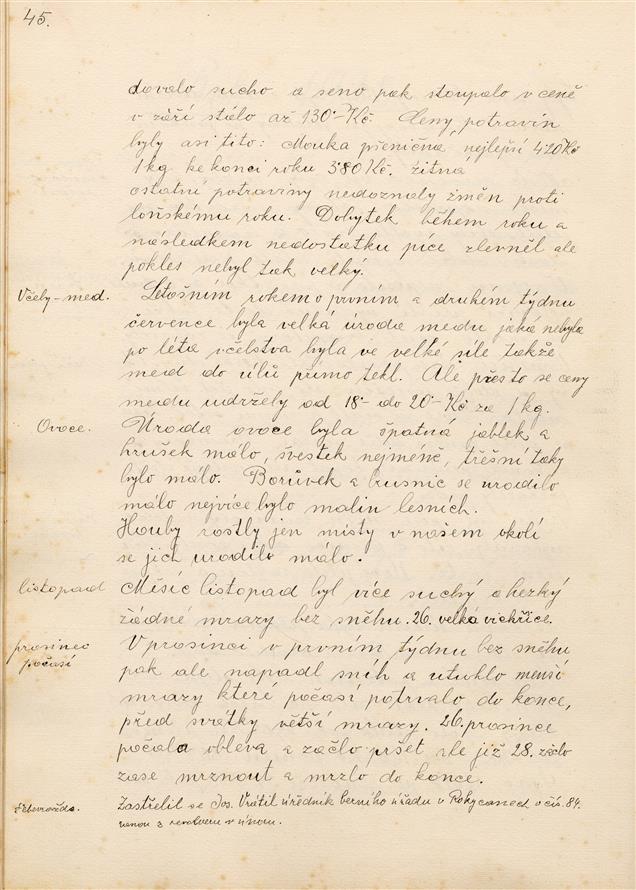 45.
davalo sucho a seno pak stoupalo v ceně
v září stálo až 130·- Kč. Ceny potravin
byly asi tito: Mouka pšeničná nejlepší 4·20 Kč
1 kg ke konci roku 3·80 Kč. žitná
ostatní potraviny nedoznaly změn proti
loňskému roku. Dobytek během roku a
následkem nedostatku píce zlevněl ale
pokles nebyl tak velký.
Včely - med.
Letošním rokem o prvním a druhém týdnu
července byla velká úroda medu jaká nebyla
po léta včelstva byla ve velké síle takže
med do úlů přímo tekl. Ale přesto se ceny
medu udržely od 18·- do 20·- Kč za 1 kg.
Ovoce.
Úroda ovoce byla špatná jablek a
hrušek málo, švestek nejméně, třešní taky
bylo málo. Borůvek a brusnic se urodilo
málo nejvíce bylo malin lesních.
Houby rostly jen místy v našem okolí
se jich urodilo málo.
listopad
Měsíc listopad byl více suchý a hezký
žádné mrazy bez sněhu. 26. velká vichřice.
prosinec
počasí
V prosinci v prvním týdnu bez sněhu
pak ale napadl sníh a utuhlo menší
mrazy které počasí potrvalo do konce,
před svátky větší mrazy. 26. prosince
počala obleva a začlo pršet ale již 28. začlo
zase mrznout a mrzlo do konce.
Sebevražda.
Zastřelil se Jos. Vrátil úředník berního úřadu v Rokycanech v čís. 84.
ranou z revolveru v únoru.